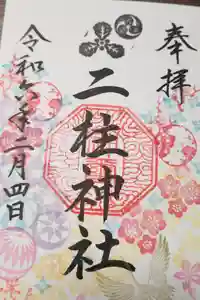 奉拝
二柱神社
令和六年二月四日